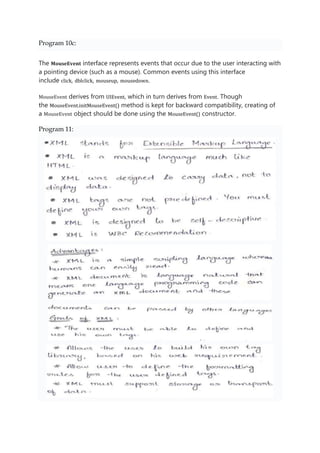 Program 10c:
The MouseEvent interface represents events that occur due to the user interacting with
a pointing device (such as a mouse). Common events using this interface
include click, dblclick, mouseup, mousedown.
MouseEvent derives from UIEvent, which in turn derives from Event. Though
the MouseEvent.initMouseEvent() method is kept for backward compatibility, creating of
a MouseEvent object should be done using the MouseEvent() constructor.
Program 11:
* XML stands for Extensible Markup Language.
* XML is a markup language much like
HTML.
* XML was designed to carry data, not to
display data.
* XML tags are not predefined. You must
define your own tags.
* XML is designed to be self-descriptive.
* XML is W3C Recommendation
Advantages:
* XML is a simple scripting language whereas
humans can easily read.
* XML document is language natural that
means one language programming code can
generate an XML document and these
documents can be parsed by other languages
Goals of XML:
* The user must be able to define and
use his own tags.
* Allows the user to build his own tag
library, based on his web requirement.
* Allow user to define the formatting
rules for the user defined tags.
* XML must support storage as transport
of data.